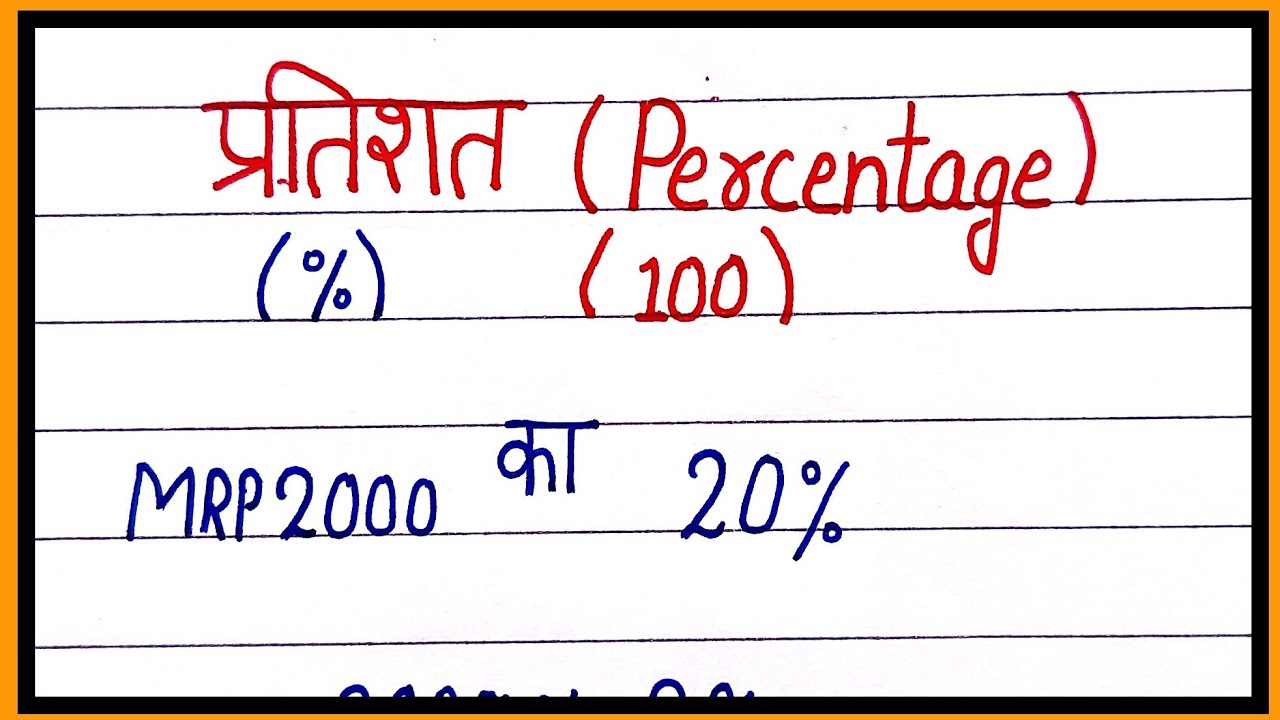 प्रतिशत (Percentage)
(%) (100)
MRP2000 का 20%